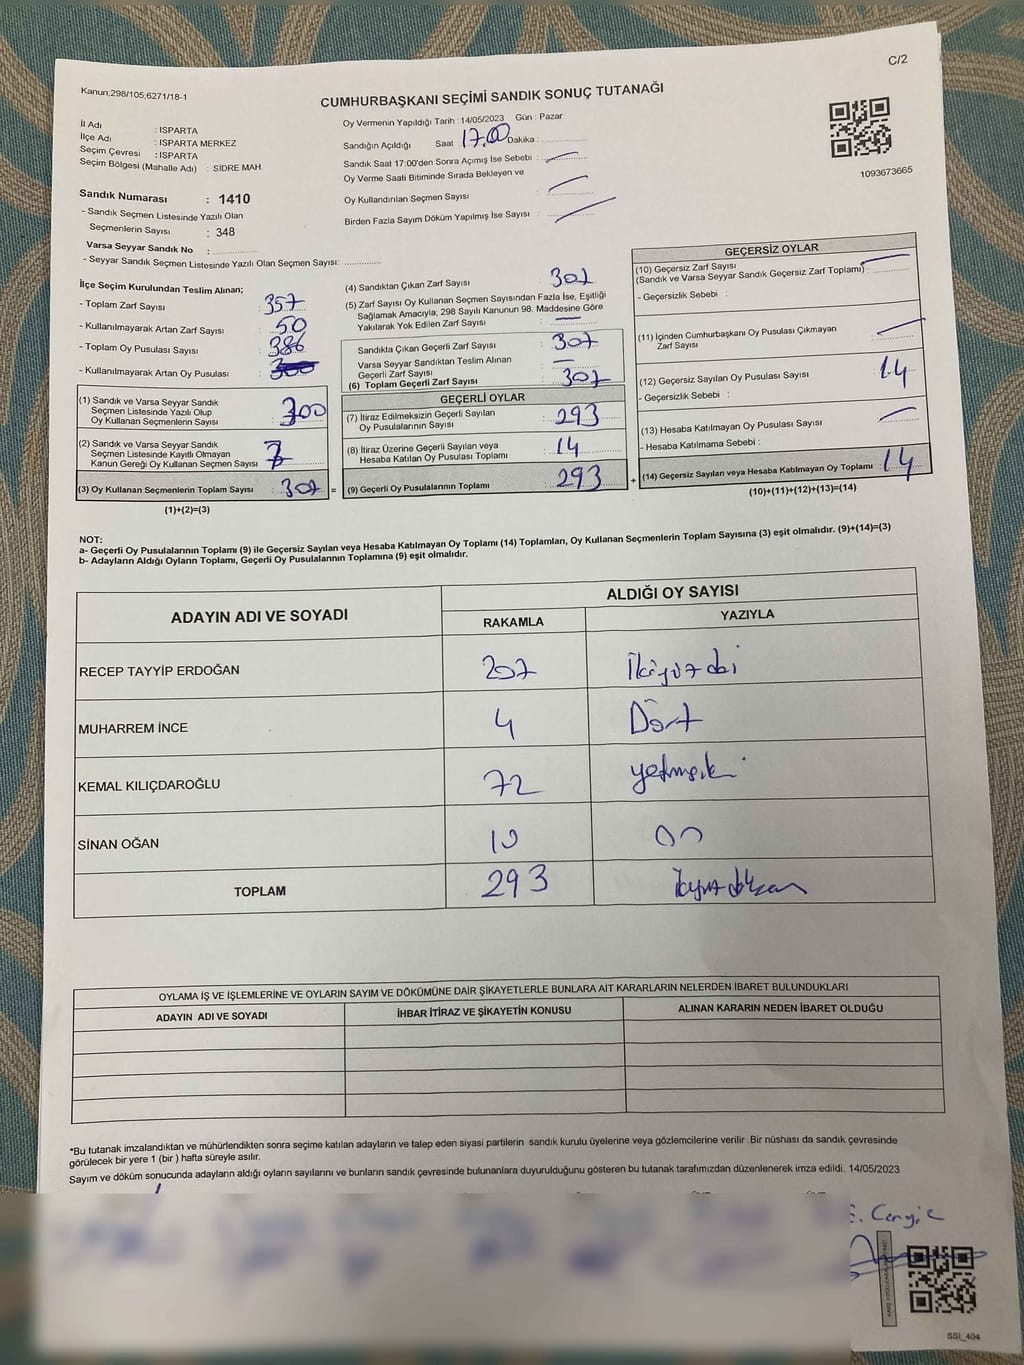 C/2
Kanun;298/105,6271/18-1
CUMHURBAŞKANI SEÇİMİ SANDIK SONUÇ TUTANAĞI
İl Adı : ISPARTA
İlçe Adı : ISPARTA MERKEZ
Seçim Çevresi : ISPARTA
Seçim Bölgesi (Mahalle Adı) : SİDRE MAH.
Sandık Numarası : 1410
- Sandık Seçmen Listesinde Yazılı Olan
Seçmenlerin Sayısı : 348
Varsa Seyyar Sandık No :
- Seyyar Sandık Seçmen Listesinde Yazılı Olan Seçmen Sayısı:
Oy Vermenin Yapıldığı Tarih : 14/05/2023 Gün : Pazar
Sandığın Açıldığı Saat : 17.00 Dakika :
Sandık Saat 17:00'den Sonra Açımış İse Sebebi :
Oy Verme Saati Bitiminde Sırada Bekleyen ve
Oy Kullandırılan Seçmen Sayısı :
Birden Fazla Sayım Döküm Yapılmış İse Sayısı :
1093673665
İlçe Seçim Kurulundan Teslim Alınan;
- Toplam Zarf Sayısı : 357
- Kullanılmayarak Artan Zarf Sayısı : 50
- Toplam Oy Pusulası Sayısı : 386
- Kullanılmayarak Artan Oy Pusulası :
(1) Sandık ve Varsa Seyyar Sandık
Seçmen Listesinde Yazılı Olup
Oy Kullanan Seçmenlerin Sayısı : 300
(2) Sandık ve Varsa Seyyar Sandık
Seçmen Listesinde Kayıtlı Olmayan
Kanun Gereği Oy Kullanan Seçmen Sayısı : 7
(3) Oy Kullanan Seçmenlerin Toplam Sayısı : 307 =
(1)+(2)=(3)
(4) Sandıktan Çıkan Zarf Sayısı : 307
(5) Zarf Sayısı Oy Kullanan Seçmen Sayısından Fazla İse, Eşitliği
Sağlamak Amacıyla; 298 Sayılı Kanunun 98. Maddesine Göre
Yakılarak Yok Edilen Zarf Sayısı :
Sandıkta Çıkan Geçerli Zarf Sayısı : 307
Varsa Seyyar Sandıktan Teslim Alınan
Geçerli Zarf Sayısı :
(6) Toplam Geçerli Zarf Sayısı : 307
GEÇERLİ OYLAR
(7) İtiraz Edilmeksizin Geçerli Sayılan
Oy Pusulalarının Sayısı : 293
(8) İtiraz Üzerine Geçerli Sayılan veya
Hesaba Katılan Oy Pusulası Toplamı : 14
(9) Geçerli Oy Pusulalarının Toplamı : 293 +
GEÇERSİZ OYLAR
(10) Geçersiz Zarf Sayısı
(Sandık ve Varsa Seyyar Sandık Geçersiz Zarf Toplamı) :
- Geçersizlik Sebebi :
(11) İçinden Cumhurbaşkanı Oy Pusulası Çıkmayan
Zarf Sayısı :
(12) Geçersiz Sayılan Oy Pusulası Sayısı : 14
- Geçersizlik Sebebi :
(13) Hesaba Katılmayan Oy Pusulası Sayısı :
- Hesaba Katılmama Sebebi :
(14) Geçersiz Sayılan veya Hesaba Katılmayan Oy Toplamı : 14
(10)+(11)+(12)+(13)=(14)
NOT:
a- Geçerli Oy Pusulalarının Toplamı (9) ile Geçersiz Sayılan veya Hesaba Katılmayan Oy Toplamı (14) Toplamları, Oy Kullanan Seçmenlerin Toplam Sayısına (3) eşit olmalıdır. (9)+(14)=(3)
b- Adayların Aldığı Oyların Toplamı, Geçerli Oy Pusulalarının Toplamına (9) eşit olmalıdır.
ADAYIN ADI VE SOYADI
ALDIĞI OY SAYISI
RAKAMLA YAZIYLA
RECEP TAYYİP ERDOĞAN 207
MUHARREM İNCE 4 Dört
KEMAL KILIÇDAROĞLU 72
SİNAN OĞAN 10 On
TOPLAM 293
OYLAMA İŞ VE İŞLEMLERİNE VE OYLARIN SAYIM VE DÖKÜMÜNE DAİR ŞİKAYETLERLE BUNLARA AİT KARARLARIN NELERDEN İBARET BULUNDUKLARI
ADAYIN ADI VE SOYADI İHBAR İTİRAZ VE ŞİKAYETİN KONUSU ALINAN KARARIN NEDEN İBARET OLDUĞU
*Bu tutanak imzalandıktan ve mühürlendikten sonra seçime katılan adayların ve talep eden siyasi partilerin sandık kurulu üyelerine veya gözlemcilerine verilir .Bir nüshası da sandık çevresinde
görülecek bir yere 1 (bir ) hafta süreyle asılır.
Sayım ve döküm sonucunda adayların aldığı oyların sayılarını ve bunların sandık çevresinde bulunanlara duyurulduğunu gösteren bu tutanak tarafımızdan düzenlenerek imza edildi. 14/05/2023
SSI_404